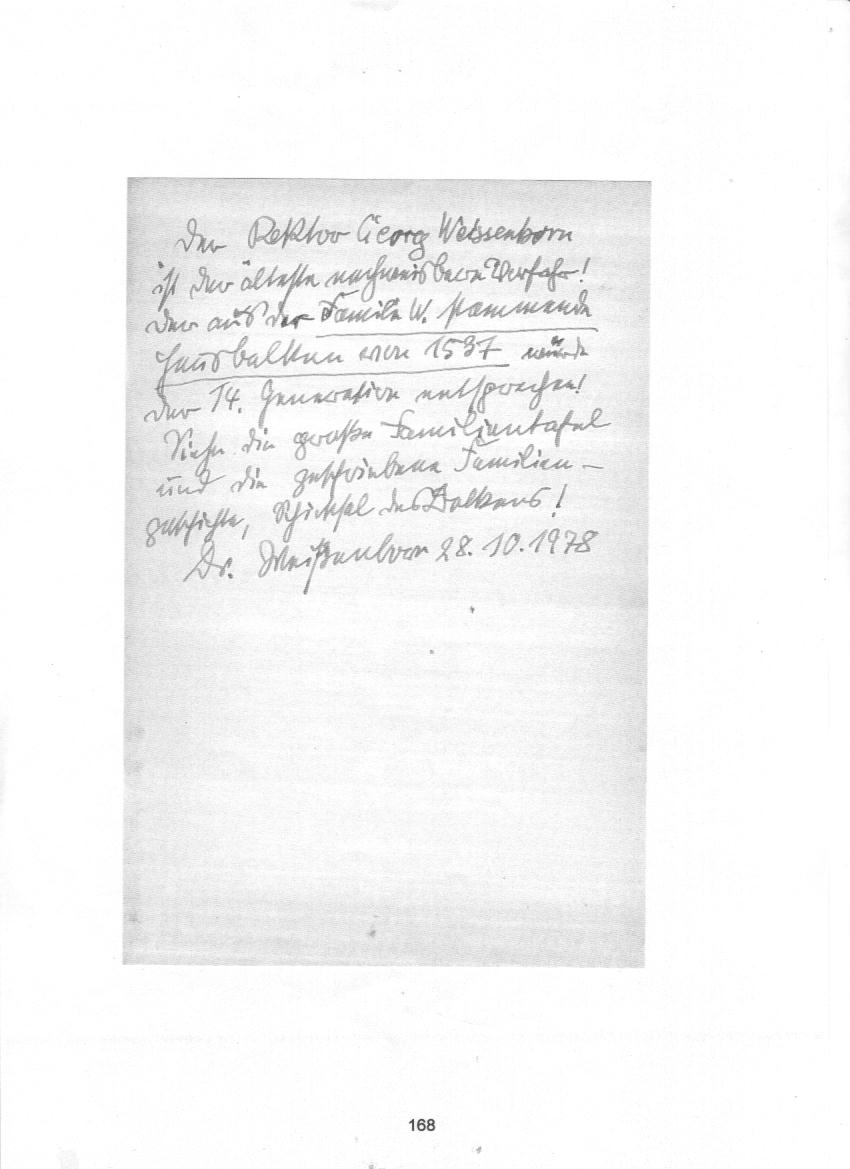 Der Rektor Georg Weissenborn
ist der älteste nachweisbare Vorfahr!
Der aus der Familie W. stammende
Hausbalken von 1537 würde
der 14. Generation entsprechen!
Siehe die große Familientafel
und die geschriebene Familien-
geschichte, Schicksal des Balkens!
Dr. Weißenborn 28.10.1978
168